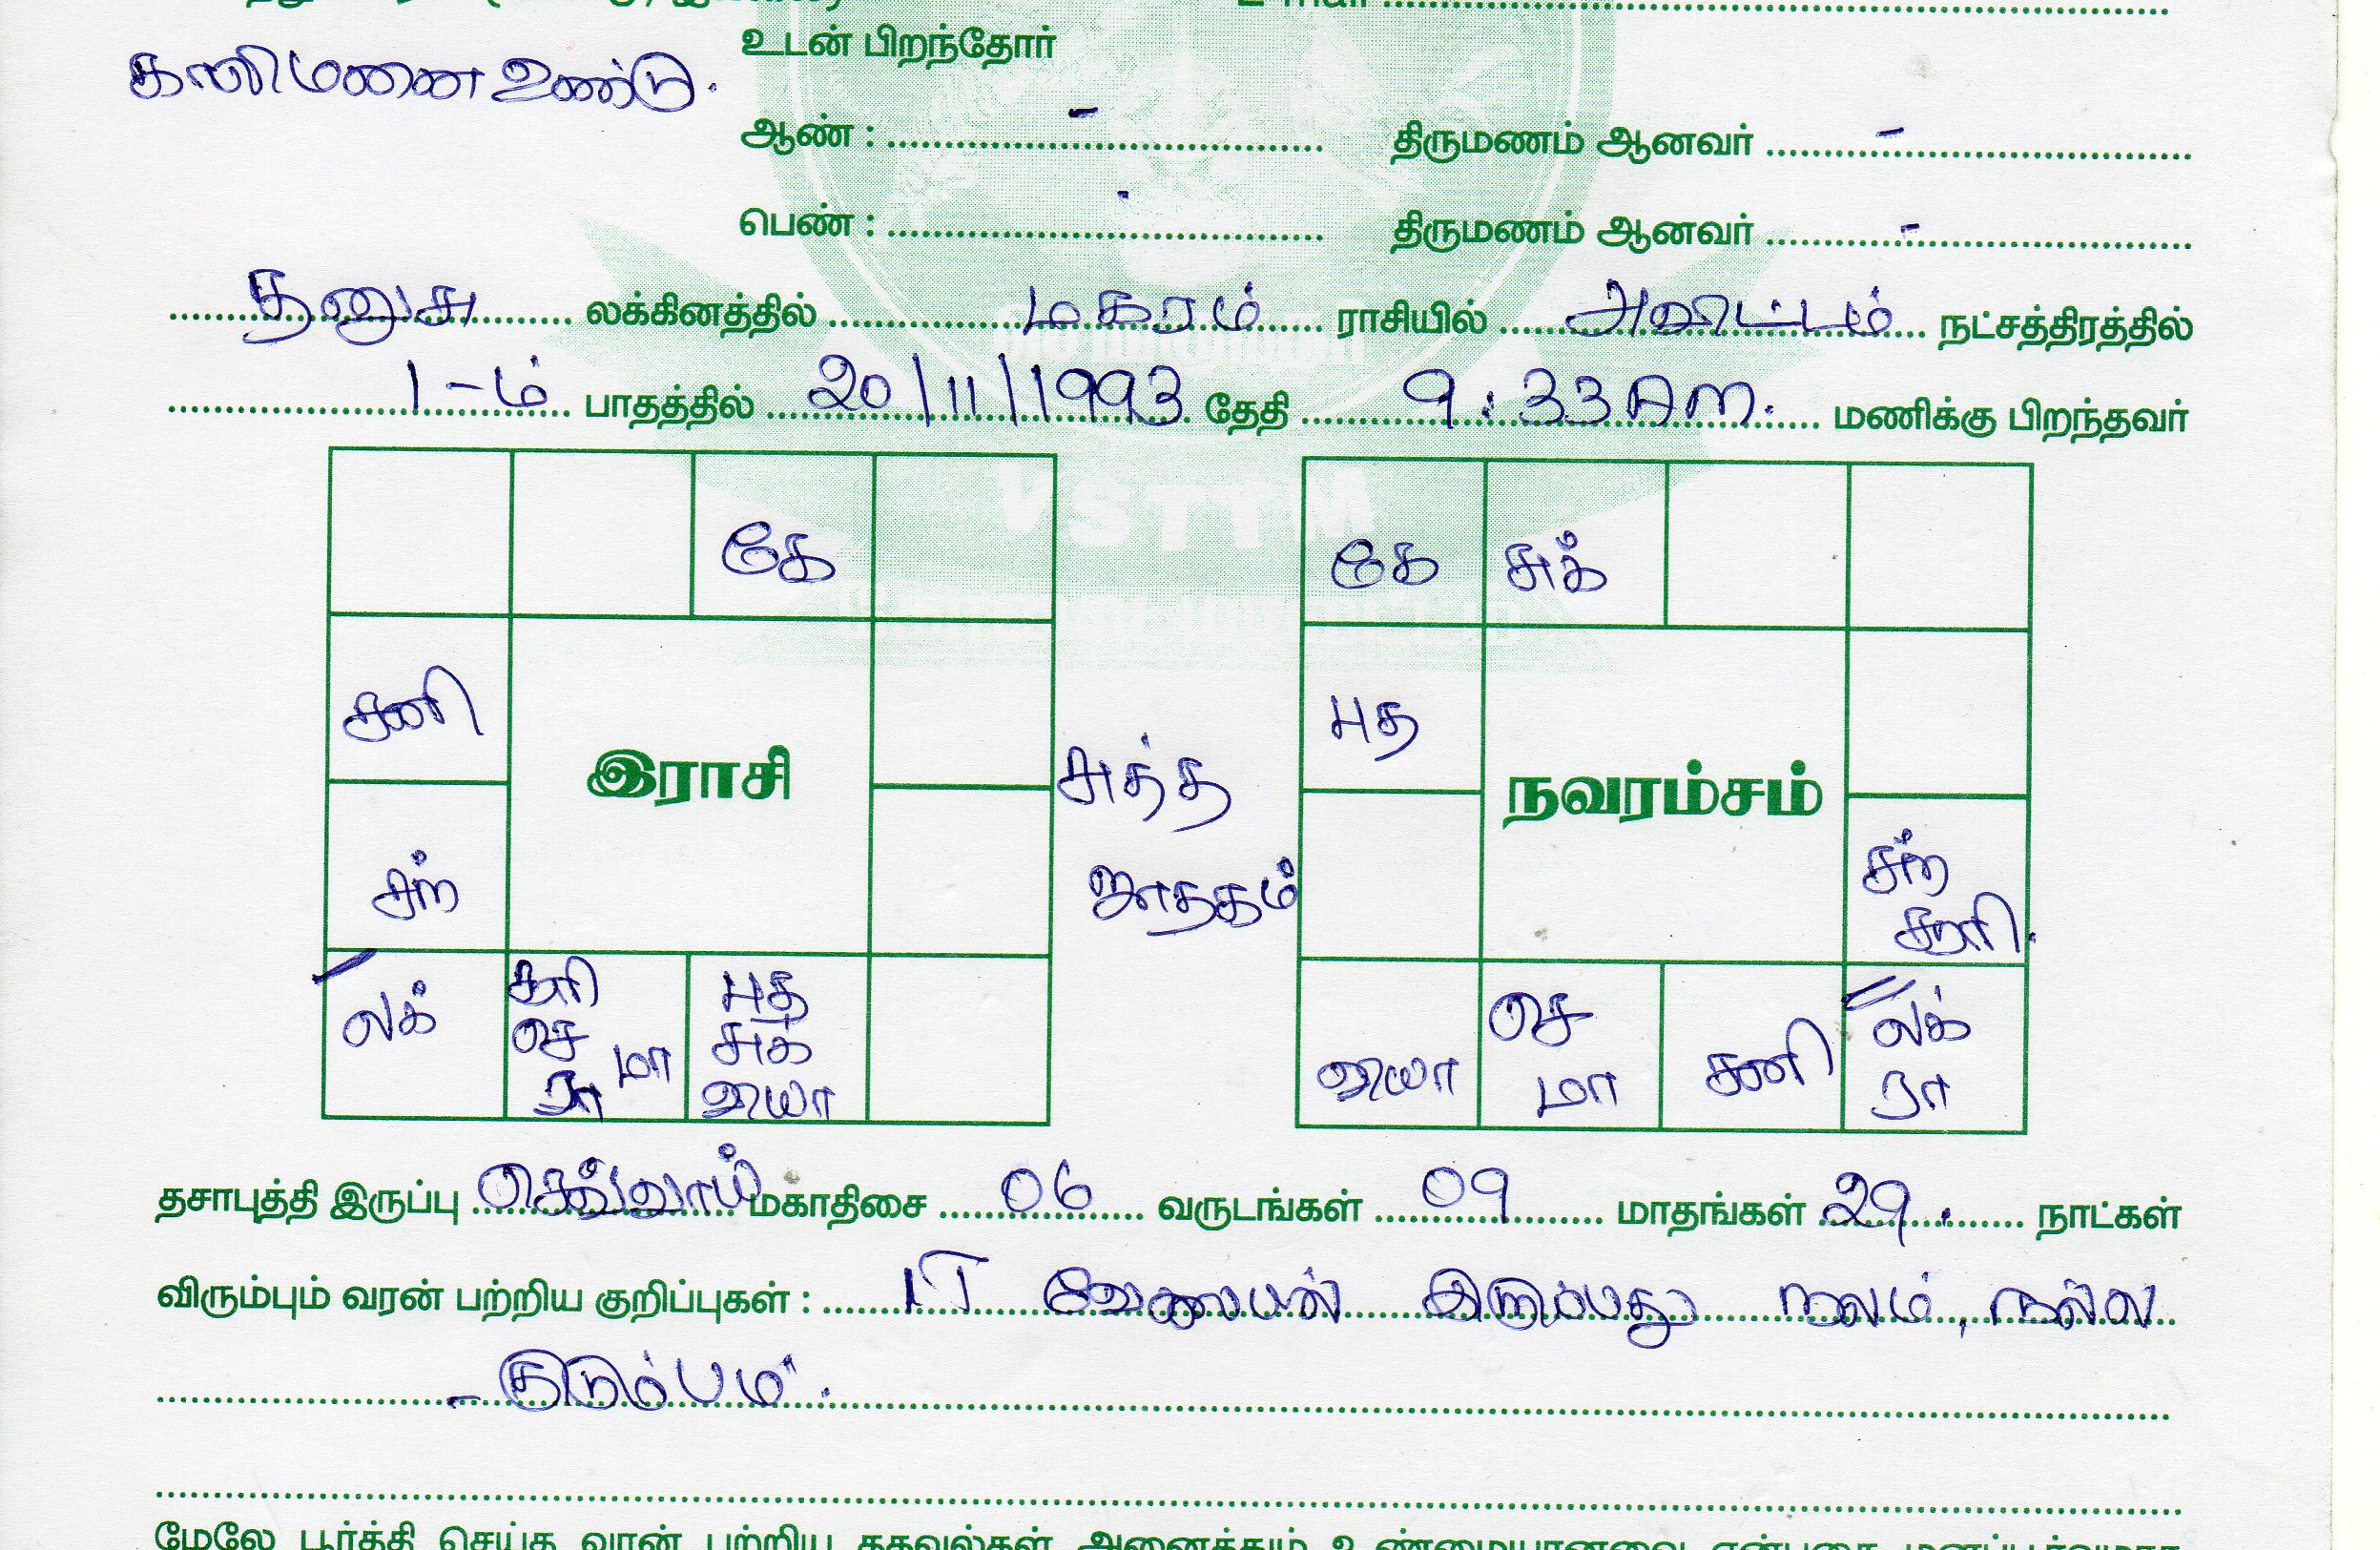 E-mail
உடன் பிறந்தோர்
காலிமனை உண்டு.
ஆண் : - திருமணம் ஆனவர் -
பெண் : - திருமணம் ஆனவர் -
தனுசு லக்கினத்தில் மகரம் ராசியில் அவிட்டம் நட்சத்திரத்தில்
1-ம் பாதத்தில் 20/11/1993 தேதி 9:33 Am. மணிக்கு பிறந்தவர்
VSTTM
கே
கே சுக்
சனி
இராசி
சுத்த
ஜாதகம்
புத
நவரம்சம்
சந்
சந்
சூரி.
லக்
சூரி
செ மா
ரா
புத
சுக்
வியா
வியா
செ
மா
சனி
லக்
ரா
தசாபுத்தி இருப்பு செவ்வாய் மகாதிசை 06 வருடங்கள் 09 மாதங்கள் 29. நாட்கள்
விரும்பும் வரன் பற்றிய குறிப்புகள் : IT வேலையில் இருப்பது நலம், நல்ல
- குடும்பம்.
மேலே பூர்த்தி செய்த வரன் பற்றிய தகவல்கள் அனைத்தும் உண்மையானவை என்பதை மனப்பூர்வமாக